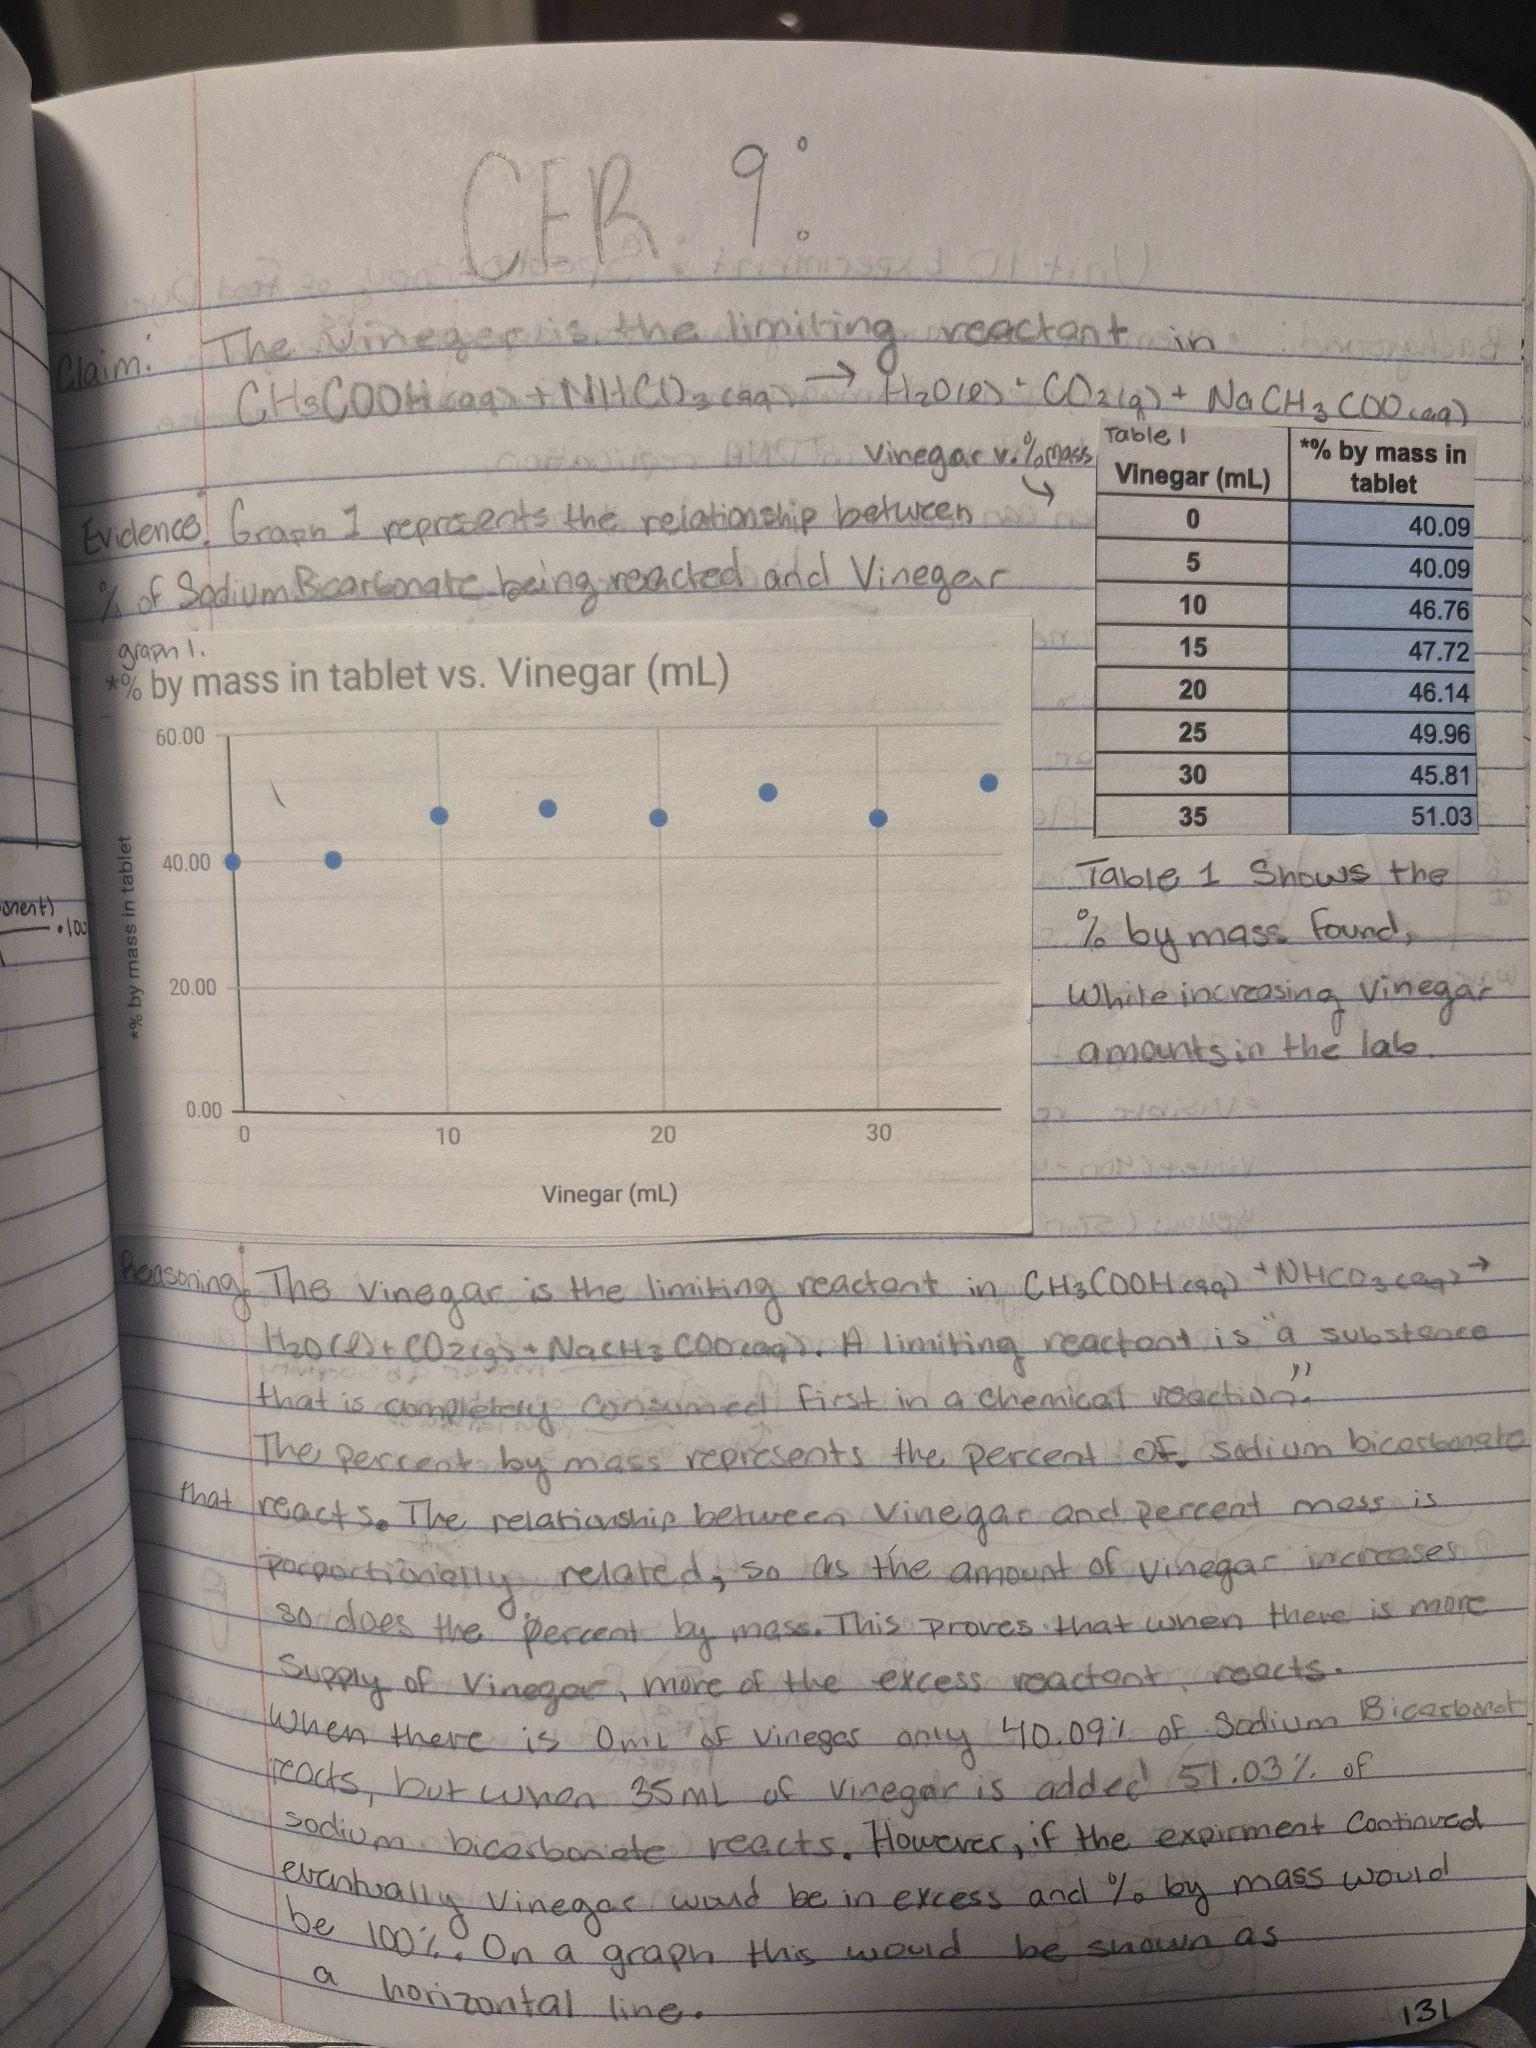 CER 9:
Claim: The Vineger is the limiting reactant in
CH3COOH(aq) + NHCO3(aq) → H2O(l) + CO2(g) + NaCH3COO(aq)
Vinegar v. % mass
Table 1
Vinegar (mL) *% by mass in tablet
0 40.09
5 40.09
10 46.76
15 47.72
20 46.14
25 49.96
30 45.81
35 51.03
Evidence: Graph 1 represents the relationship between
% of Sodium Bicarbonate being reacted and Vinegar
graph 1.
*% by mass in tablet vs. Vinegar (mL)
*% by mass in tablet
60.00
40.00
20.00
0.00
0 10 20 30
Vinegar (mL)
Table 1 Shows the
% by mass found,
While increasing Vinegar
amounts in the lab.
Reasoning: The Vinegar is the limiting reactant in CH3COOH(aq) + NHCO3(aq) →
H2O(l) + CO2(g) + NaCH3COO(aq). A limiting reactant is "a substance
that is completely consumed first in a chemical reaction".
The percent by mass represents the percent of sodium bicarbonate
that reacts. The relationship between Vinegar and percent mass is
porportionally related, so as the amount of vinegar increases
so does the percent by mass. This proves that when there is more
Supply of Vinegar, more of the excess reactant reacts.
When there is 0mL of Vinegar only 40.09% of Sodium Bicarbonat
reacts, but when 35mL of Vinegar is added 51.03% of
sodium bicarbonate reacts. However, if the expirment Continued
eventually Vinegar would be in excess and % by mass would
be 100%. On a graph this would be shown as
a horizontal line.
131
onent)
.100